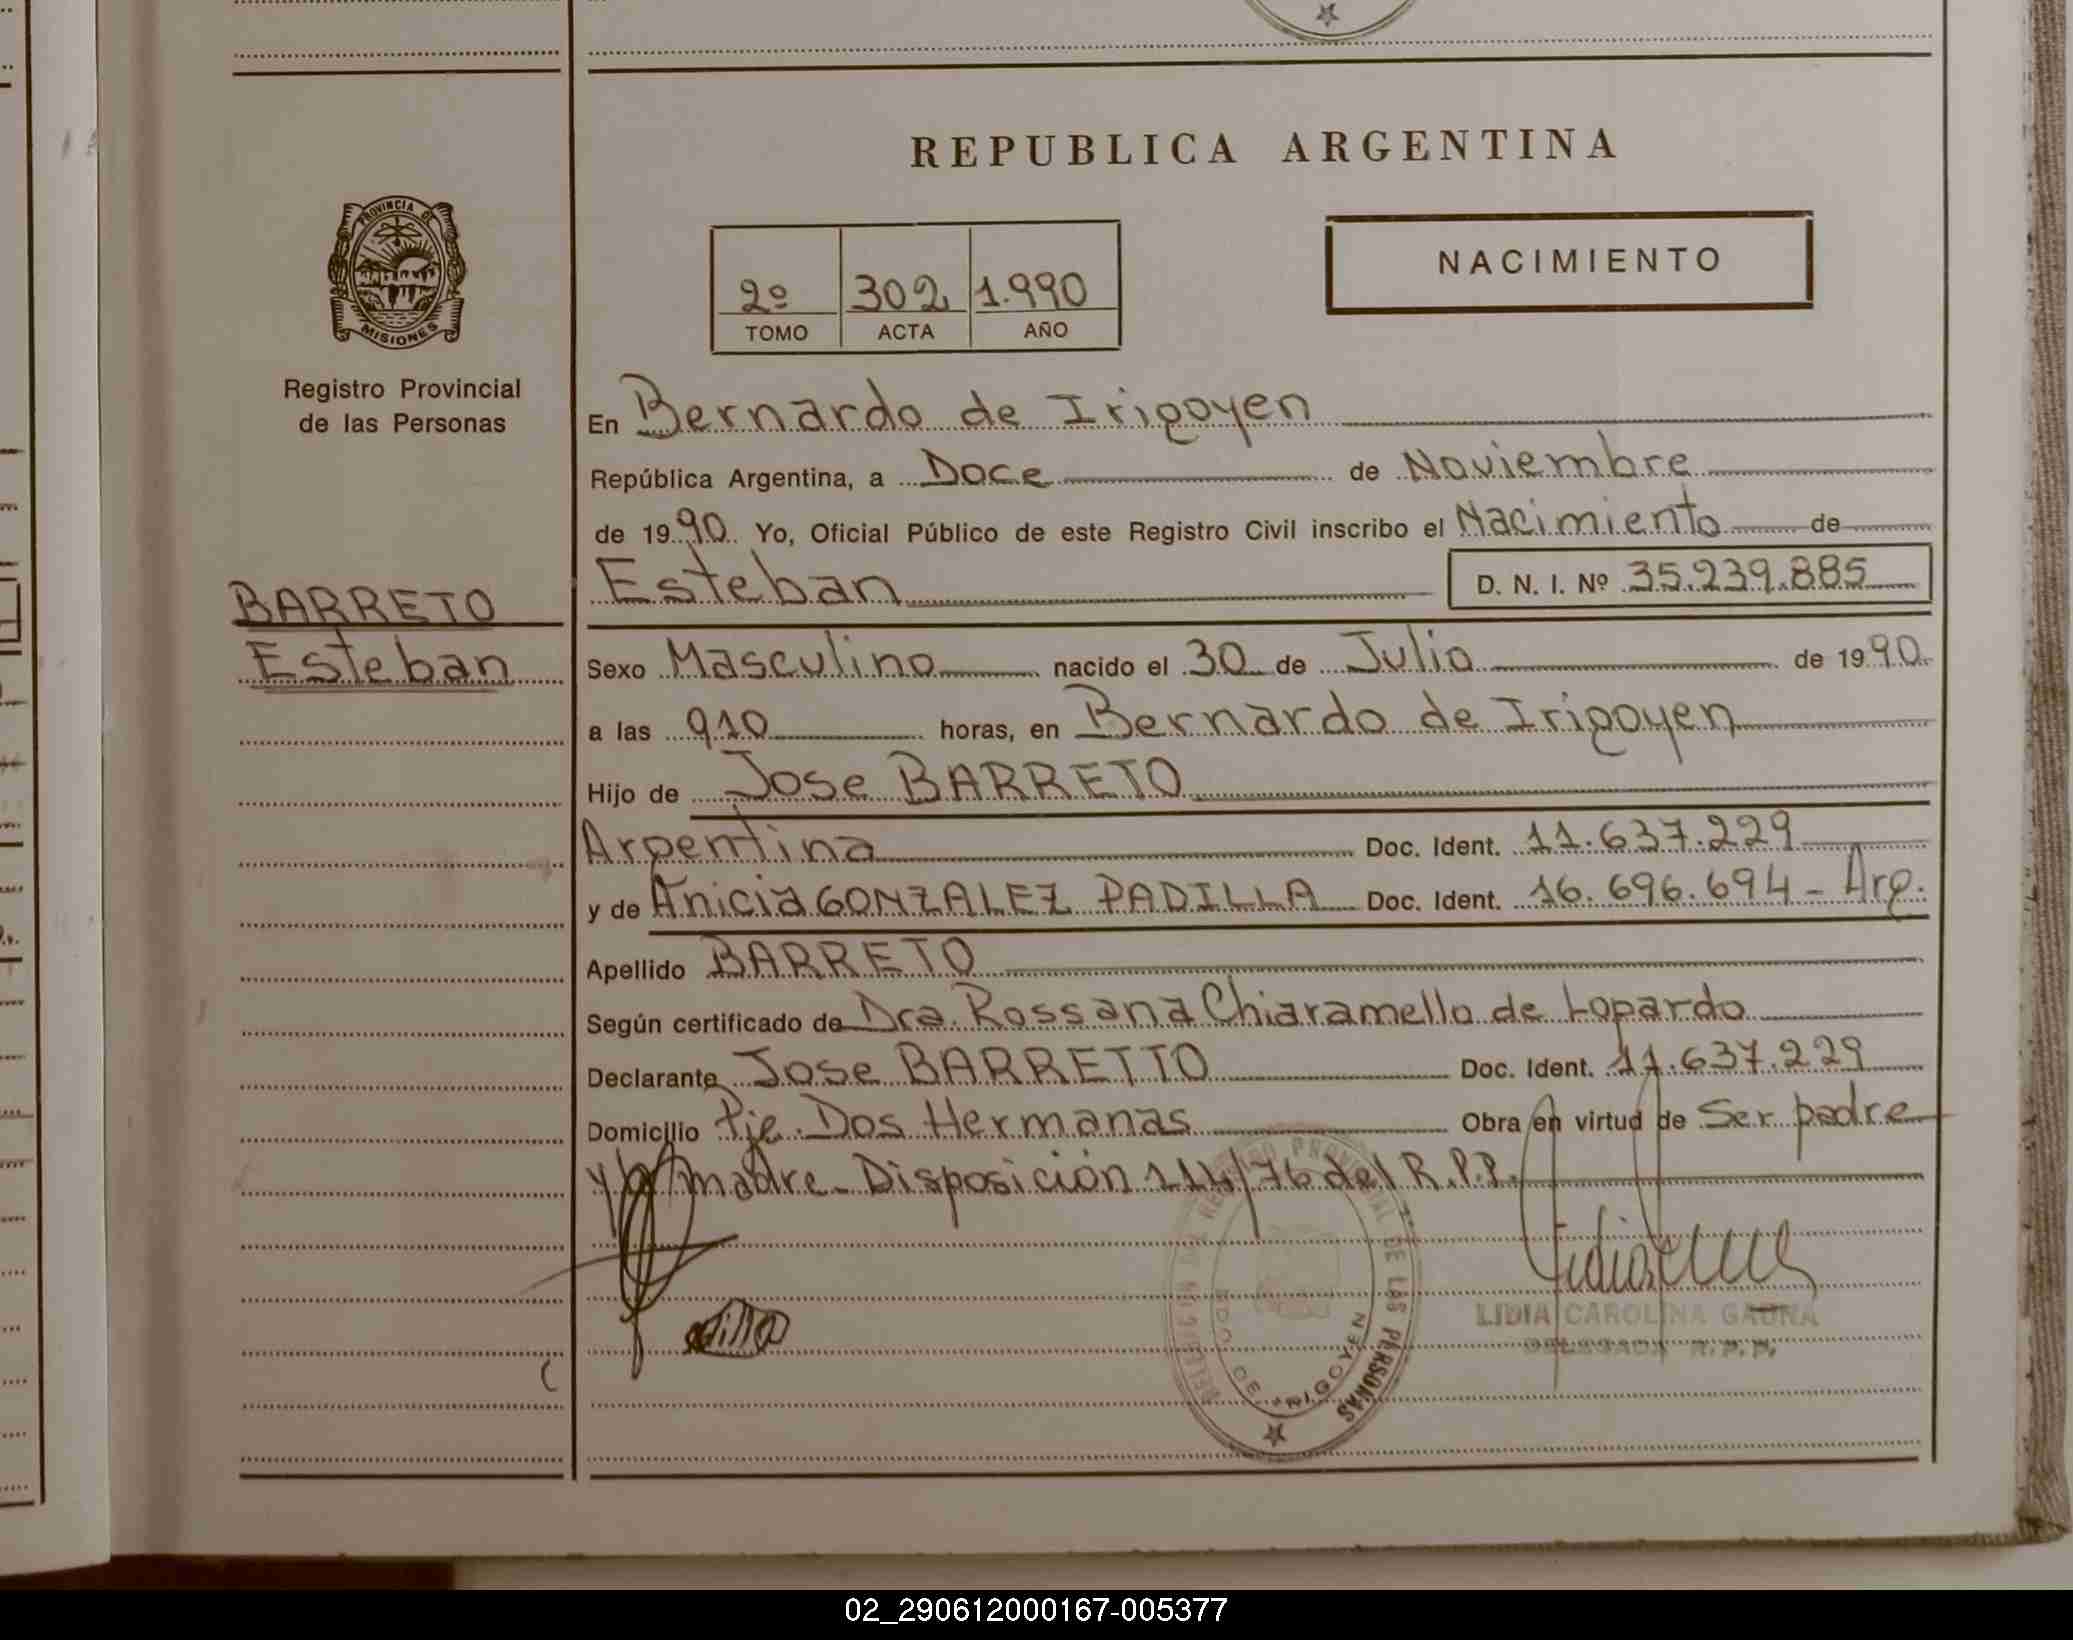 REPUBLICA ARGENTINA
PROVINCIA DE
MISIONES
Registro Provincial
de las Personas
2º 302 1.990
TOMO ACTA AÑO
NACIMIENTO
En Bernardo de Irigoyen
República Argentina, a Doce de Noviembre
de 1990 Yo, Oficial Público de este Registro Civil inscribo el Nacimiento de
Esteban D. N. I. Nº 35.239.885
BARRETO
Esteban
Sexo Masculino nacido el 30 de Julio de 1990
a las 910 horas, en Bernardo de Irigoyen
Hijo de Jose BARRETO
Argentina Doc. Ident. 11.637.229
y de Anicia GONZALEZ PADILLA Doc. Ident. 16.696.694 - Arg.
Apellido BARRETO
Según certificado de Dra. Rossana Chiaramello de Lopardo
Declarante Jose BARRETTO Doc. Ident. 11.637.229
Domicilio Pje. Dos Hermanas Obra en virtud de Ser padre
y madre. Disposición 114/76 del R.P.P.
REGISTRO PROVINCIAL DE LAS PERSONAS
BDO DE IRIGOYEN
LIDIA CAROLINA GAUNA
DELEGADA R.P.P.
02_290612000167-005377